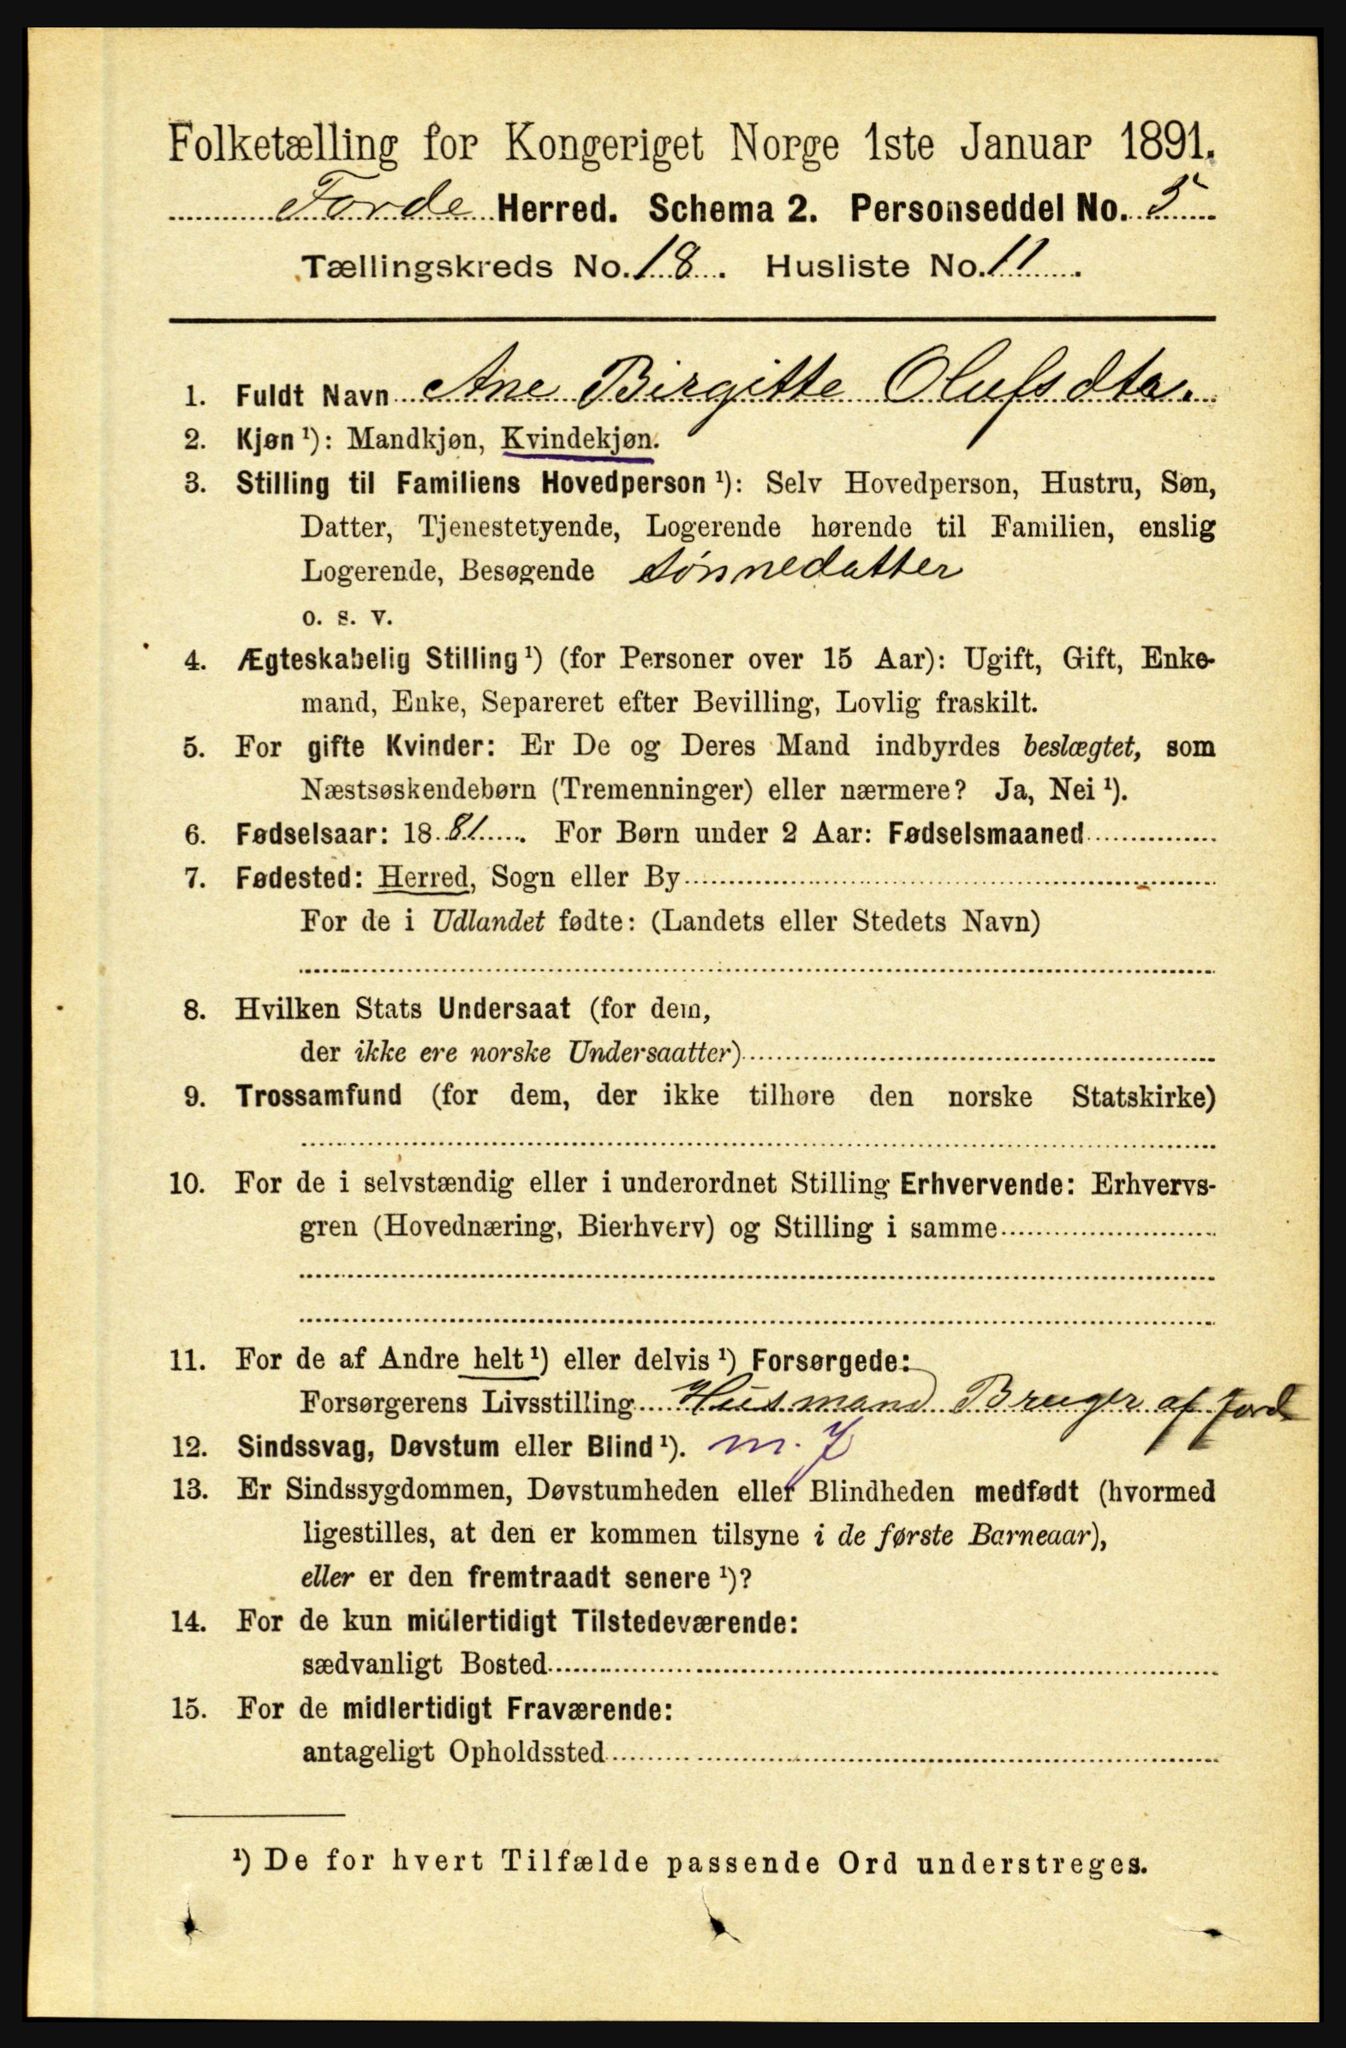 Folketælling for Kongeriget Norge 1ste Januar 1891.
Førde Herred. Schema 2. Personseddel No. 5
Tællingskreds No. 18. Husliste No. 11.
1. Fuldt Navn Ane Birgitte Olufsdtr.
2. Kjøn ¹): Mandkjøn, Kvindekjøn.
3. Stilling til Familiens Hovedperson ¹): Selv Hovedperson, Hustru, Søn,
Datter, Tjenestetyende, Logerende hørende til Familien, enslig
Logerende, Besøgende Sønnedatter
o. s. v.
4. Ægteskabelig Stilling ¹) (for Personer over 15 Aar): Ugift, Gift, Enke-
mand, Enke, Separeret efter Bevilling, Lovlig fraskilt.
5. For gifte Kvinder: Er De og Deres Mand indbyrdes beslægtet, som
Næstsøskendebørn (Tremenninger) eller nærmere? Ja, Nei ¹).
6. Fødselsaar: 1881. For Børn under 2 Aar: Fødselsmaaned
7. Fødested: Herred, Sogn eller By
For de i Udlandet fødte: (Landets eller Stedets Navn)
8. Hvilken Stats Undersaat (for dem,
der ikke ere norske Undersaatter)
9. Trossamfund (for dem, der ikke tilhøre den norske Statskirke)
10. For de i selvstændig eller i underordnet Stilling Erhvervende: Erhvervs-
gren (Hovednæring, Bierhverv) og Stilling i samme
11. For de af Andre helt ¹) eller delvis ¹) Forsørgede:
Forsørgerens Livsstilling Husmand Bruger af Jord
12. Sindssvag, Døvstum eller Blind ¹). m. J
13. Er Sindssygdommen, Døvstumheden eller Blindheden medfødt (hvormed
ligestilles, at den er kommen tilsyne i de første Barneaar),
eller er den fremtraadt senere ¹)?
14. For de kun midlertidigt Tilstedeværende:
sædvanligt Bosted
15. For de midlertidigt Fraværende:
antageligt Opholdssted
¹) De for hvert Tilfælde passende Ord understreges.